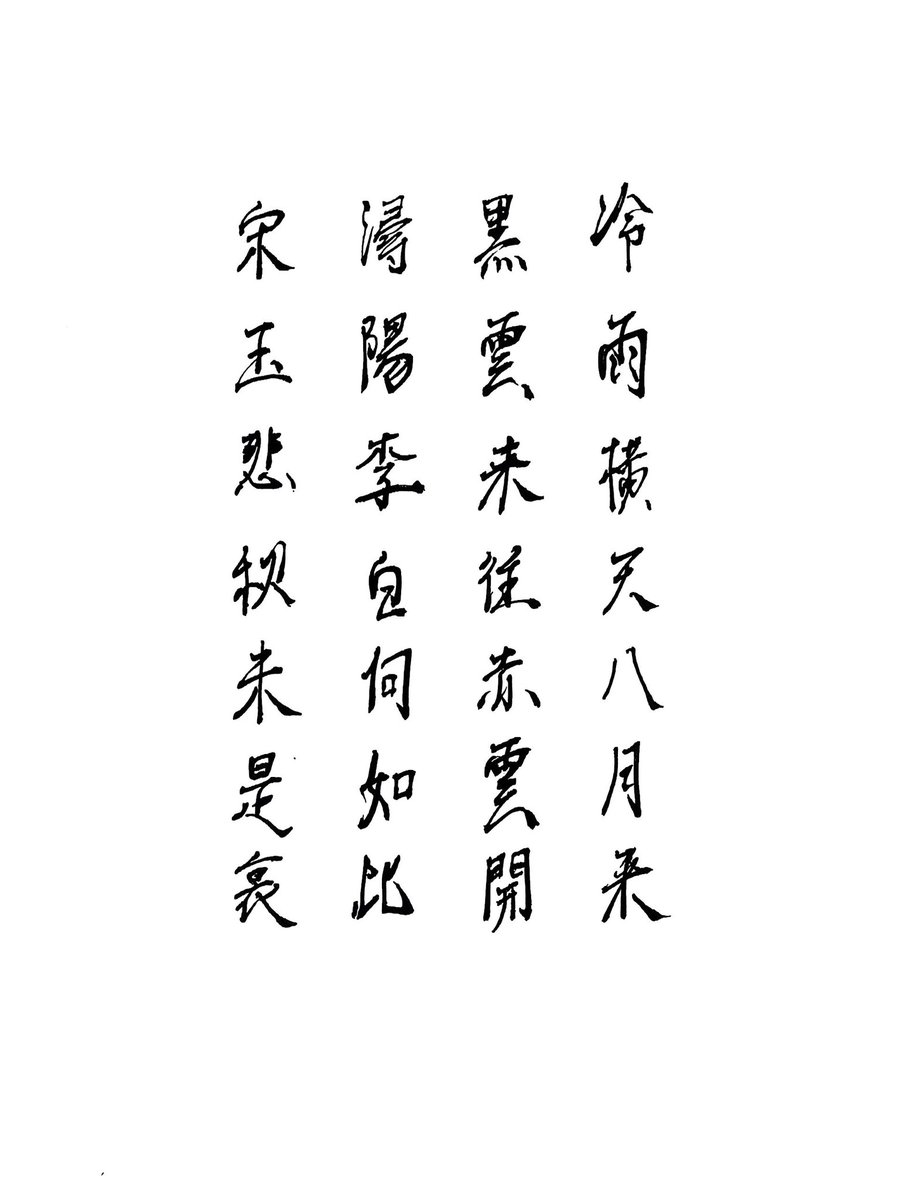 冷雨橫天八月来
黑雲来往赤雲開
潯陽李白何如此
宋玉悲秋未是哀